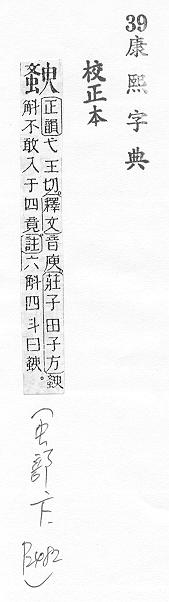 39康熙字典
校正本
正韻弋王切。釋文音庾莊子田子方
斛不敢入于四竟註六斛四斗曰
虫部